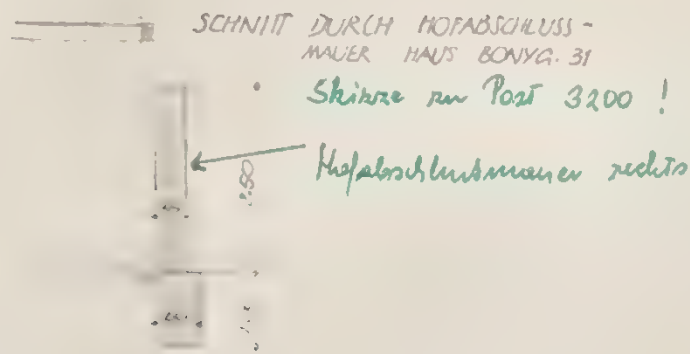 SCHNITT DURCH HOFABSCHLUSS-
MAUER HAUS BONYG. 31
Skizze zu Post 3200 !
Hofabschlußmauer rechts